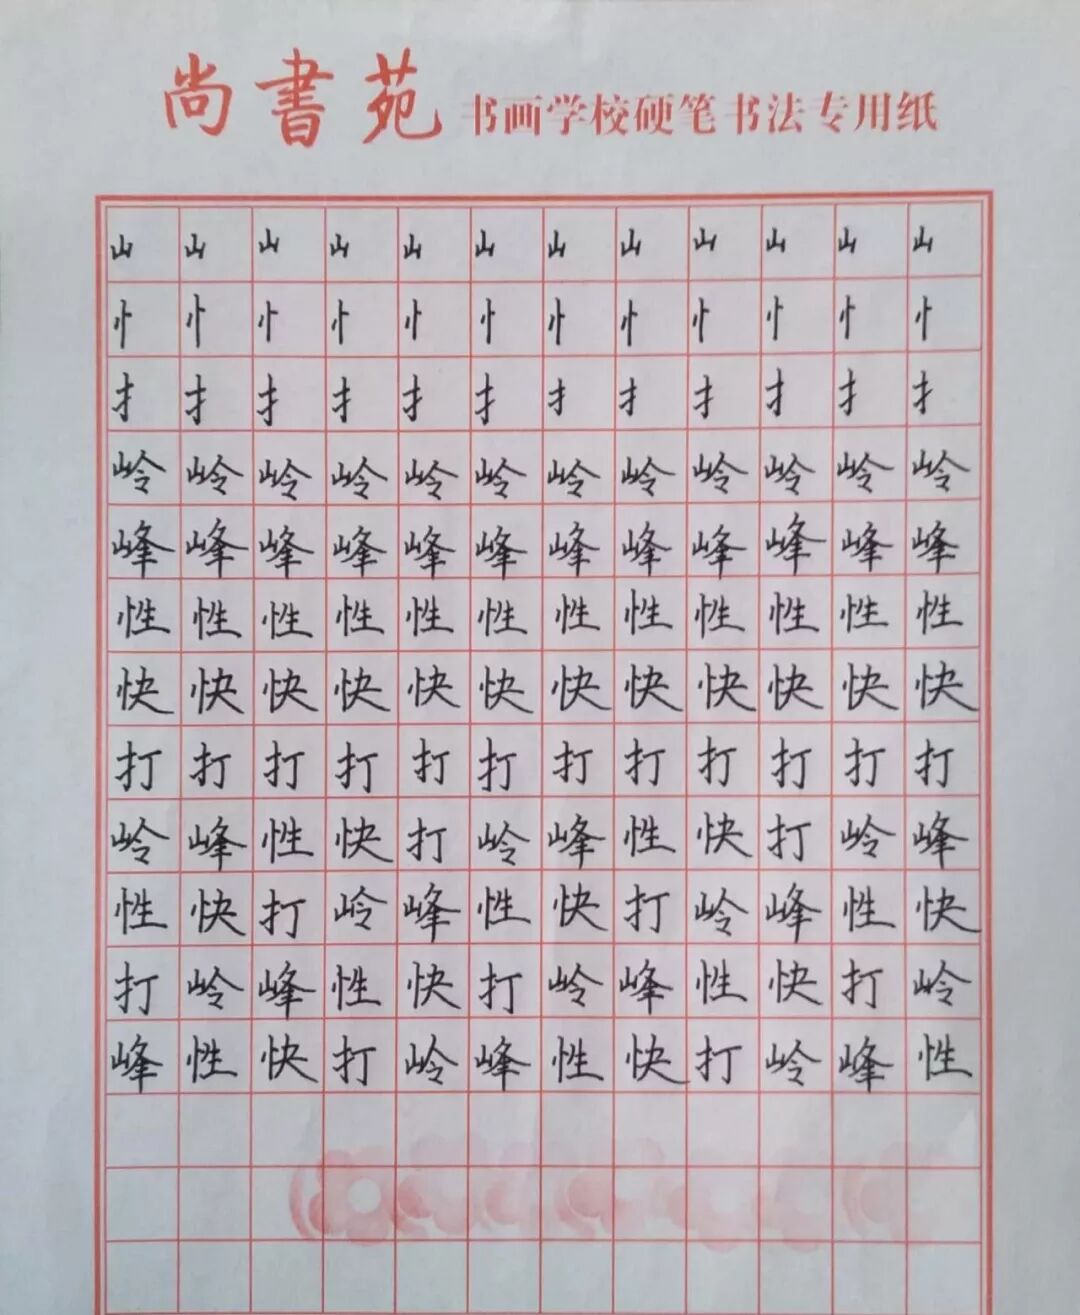 尚書苑 书画学校硬笔书法专用纸
山山山山山山山山山山山山
忄忄忄忄忄忄忄忄忄忄忄忄
扌扌扌扌扌扌扌扌扌扌扌扌
岭岭岭岭岭岭岭岭岭岭岭岭
峰峰峰峰峰峰峰峰峰峰峰峰
性性性性性性性性性性性性
快快快快快快快快快快快快
打打打打打打打打打打打打
岭峰性快打岭峰性快打岭峰
性快打岭峰性快打岭峰性快
打岭峰性快打岭峰性快打岭
峰性快打岭峰性快打岭峰性